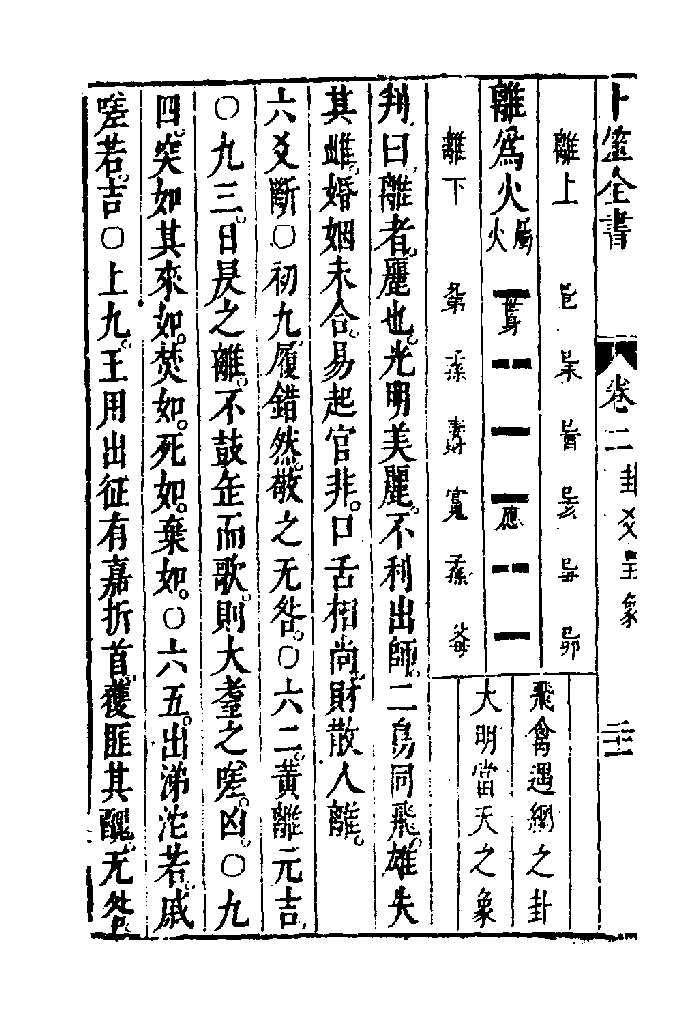 卜筮全書 卷二 卦爻呈象
離上 己巳 己未 己酉 己亥 己丑 己卯
離爲火屬火 世身 應
離下 兄弟 子孫 妻財 官鬼 子孫 父母
飛禽遇網之卦
大明當天之象
判曰離者麗也光明美麗不利出師二鳥同飛雄失
其雌婚姻未合易起官非口舌相尚財散人離
六爻斷〇初九履錯然敬之无咎〇六二黃離元吉
〇九三日昃之離不鼓缶而歌則大耋之嗟凶〇九
四突如其來如焚如死如棄如〇六五出涕沱若戚
嗟若吉〇上九王用出征有嘉折首獲匪其醜无咎